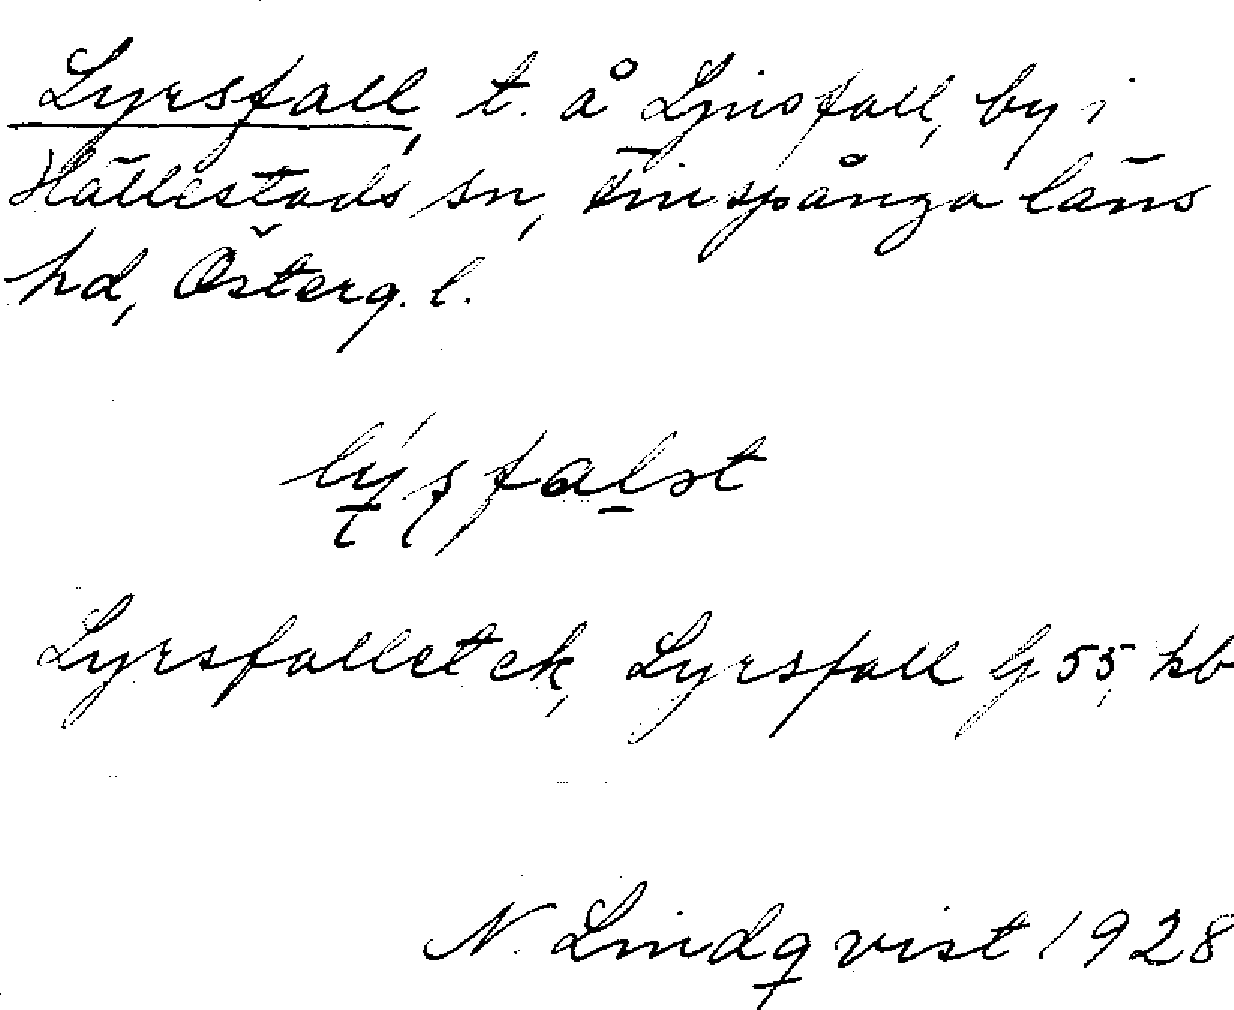 Lyrsfall, t. å Ljusfall, by i
Hällestads sn, Finspånga läns
hd, Österg. l.
Lyrsfallet ek, Lyrsfall G 55, kb
N. Lindqvist 1928